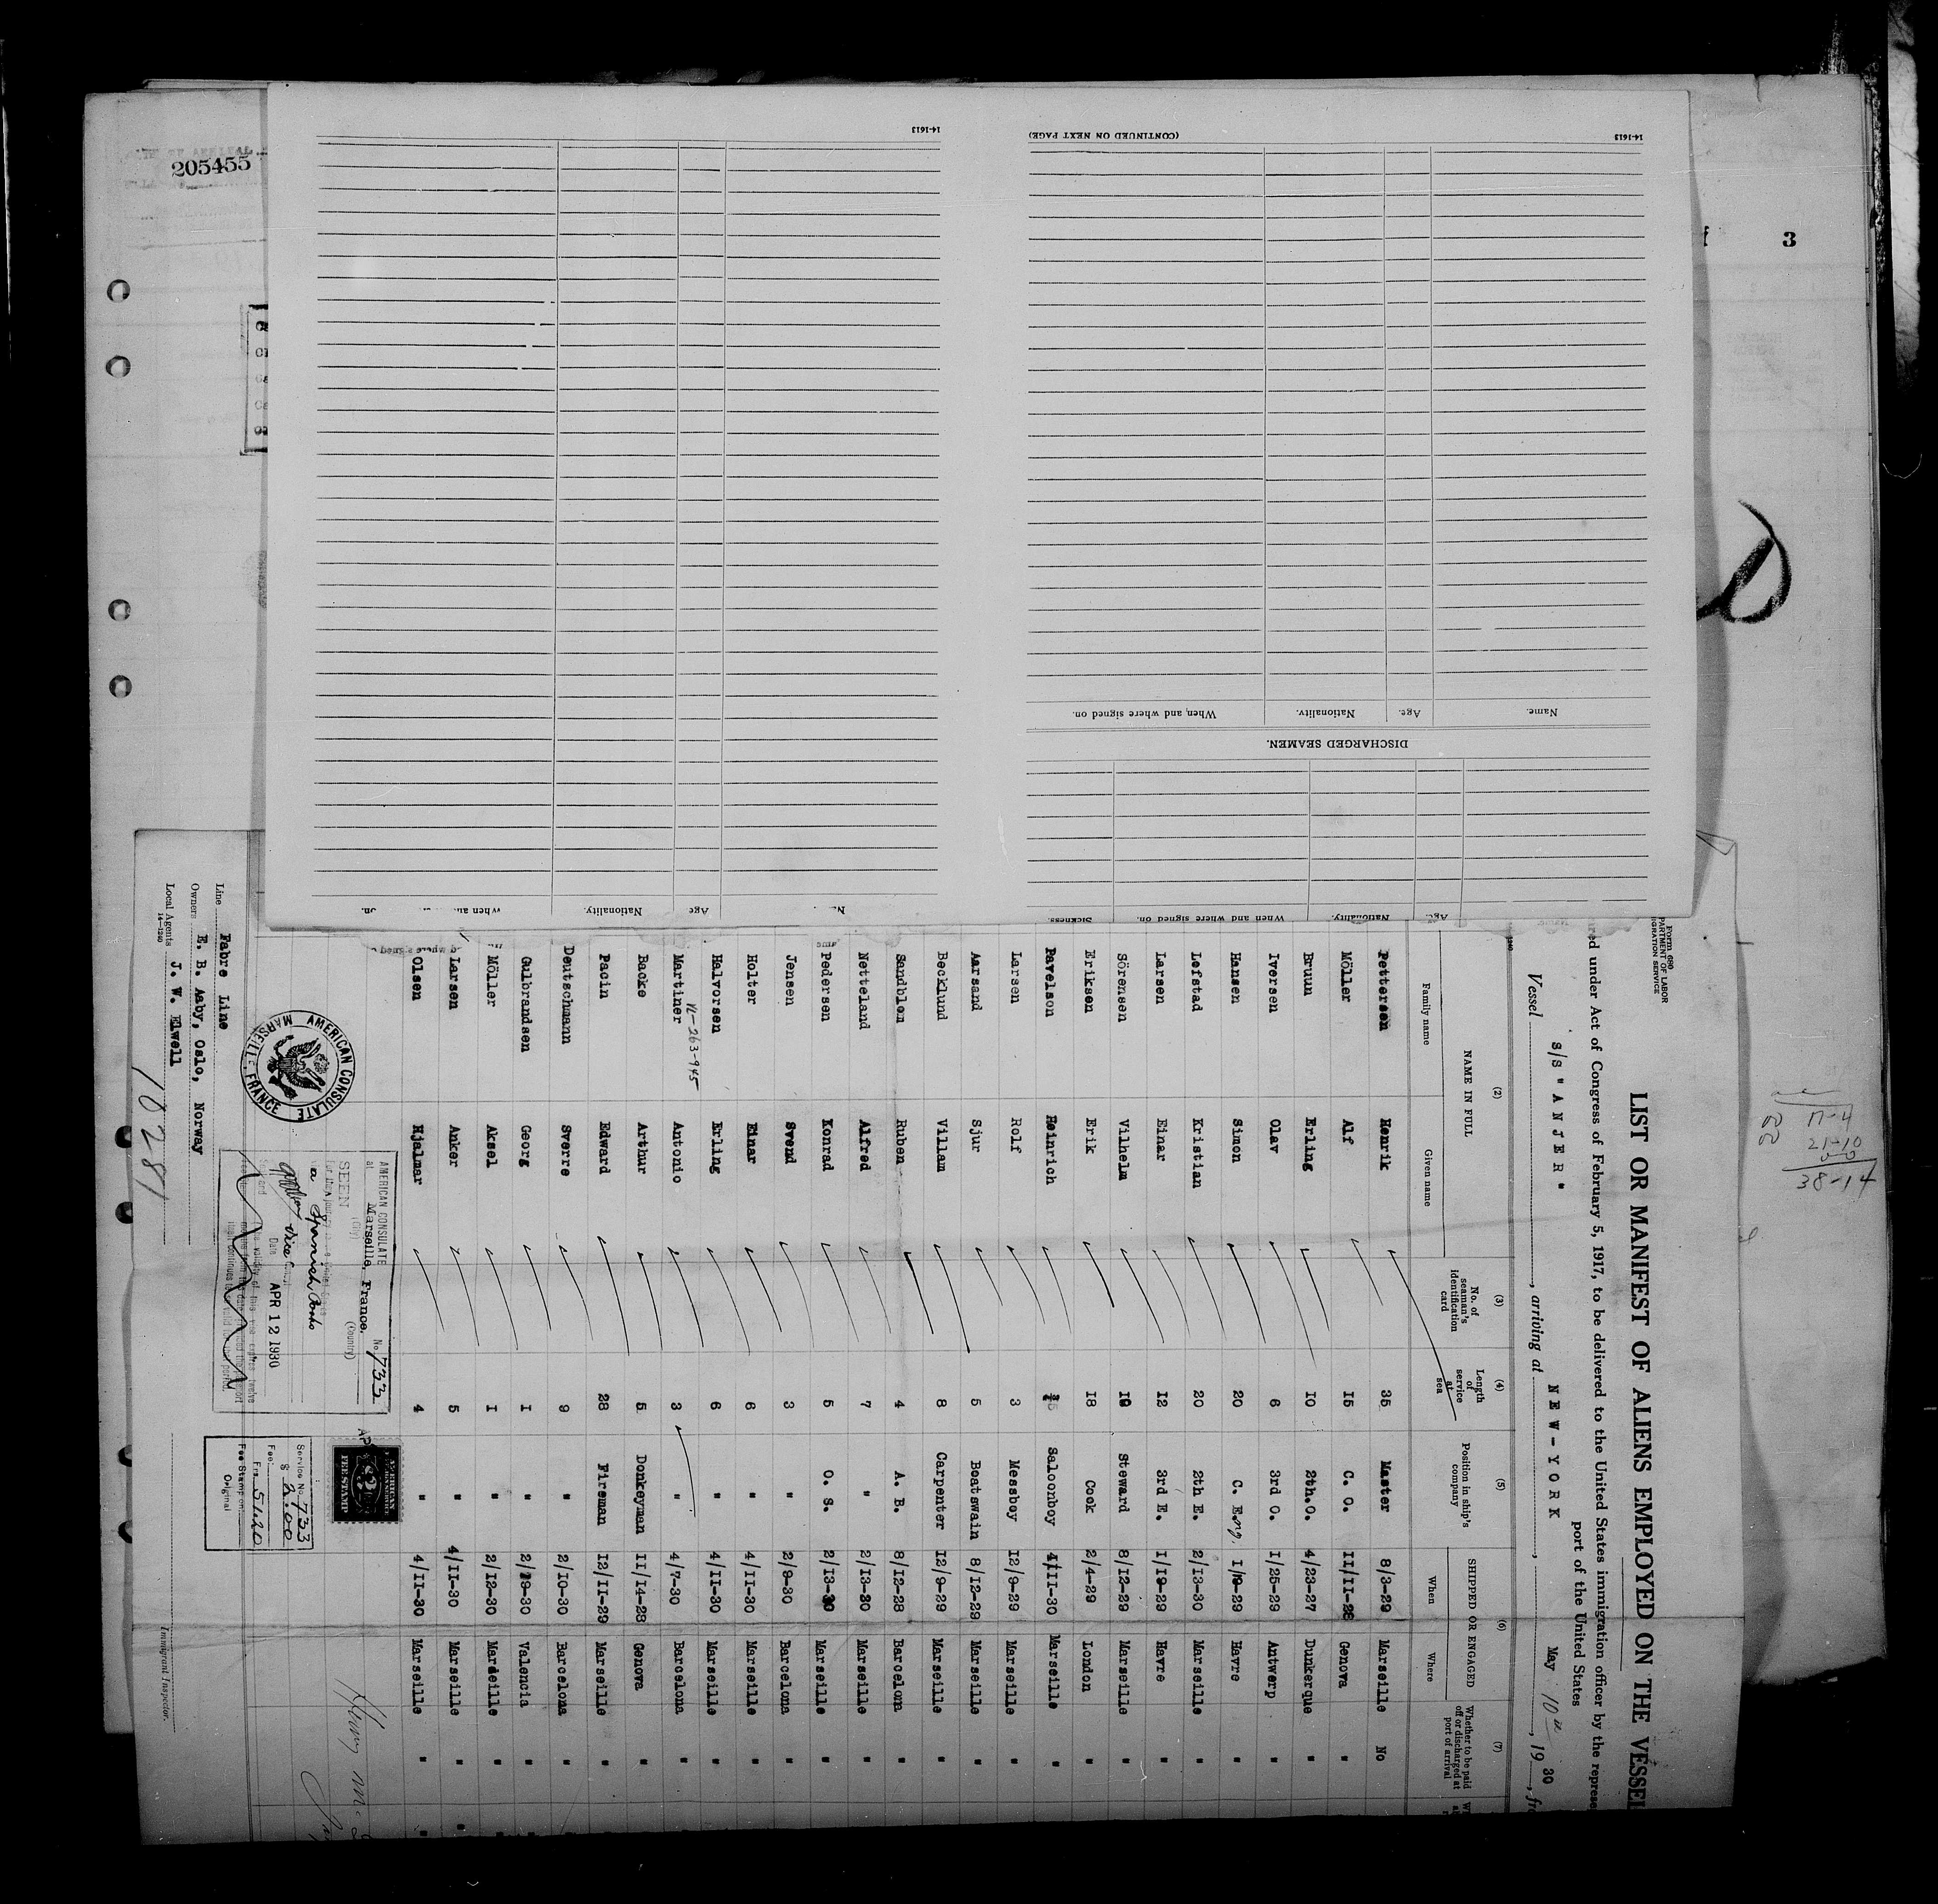 205455
3
14-1613
(CONTINUED ON NEXT PAGE)
14-1613
Name.
Age.
Nationality.
When and where signed on.
DISCHARGED SEAMEN.
Age.
Nationality.
When and where signed on.
Sickness.
Age
Nationality.
17-4
21-10
38-14
Form 680
LIST OR MANIFEST OF ALIENS EMPLOYED ON THE VESSEL
under Act of Congress of February 5, 1917, to be delivered to the United States immigration officer by the
port of the United States
Vessel S/S "ANJER", arriving at NEW-YORK, May 10th, 1930,
(2) (3) (4) (5) (6) (7)
NAME IN FULL
Family name Given name
No. of seaman's identification card
Length of service at sea
Position in ship's company
SHIPPED OR ENGAGED
When Where
Whether to be paid off or discharged at port of arrival
Pettersen Henrik 35 Master 8/3-29 Marseille No
Möller Alf 15 C. O. 11/11-28 Genova "
Bruun Erling 10 2th.O. 4/23-27 Dunkerque "
Iversen Olav 6 3rd O. 1/25-29 Antwerp "
Hansen Simon 20 C. Eng. 1/19-29 Havre "
Lofstad Kristian 20 2th E. 2/13-30 Marseille "
Larsen Einar 12 3rd E. 1/19-29 Havre "
Sörensen Vilhelm 10 Steward 8/12-29 Marseille "
Eriksen Erik 18 Cook 2/4-29 London "
Pavelson Heinrich Saloonboy 4/11-30 Marseille "
Larsen Rolf 3 Messboy 12/9-29 Marseille "
Aarsand Sjur 5 Boatswain 8/12-29 Marseille "
Becklund Villam 8 Carpenter 12/9-29 Marseille "
Sandblom Ruben 4 A. B. 8/12-28 Barcelona "
Netteland Alfred 7 " 2/13-30 Marseille "
Pedersen Konrad 5 O. S. 2/13-30 Marseille "
Jensen Svend 3 " 2/9-30 Barcelona "
Holter Einar 6 " 4/11-30 Marseille "
Halvorsen Erling 6 " 4/11-30 Marseille "
Martiner Antonio 3 " 4/7-30 Barcelona "
Backe Arthur 5 Donkeyman 11/14-28 Genova "
Pacin Edward 28 Fireman 12/11-29 Marseille "
Deutschmann Sverre 9 " 2/10-30 Barcelona "
Gulbrandsen Georg 1 " 2/19-30 Valencia "
Möller Aksel 1 " 2/12-30 Marseille "
Larsen Anker 5 " 4/11-30 Marseille "
Olsen Hjalmar 4 " 4/11-30 Marseille "
AMERICAN CONSULATE
MARSEILLE, FRANCE
AMERICAN CONSULATE
at Marseille, France. No. 733
(City) (Country)
SEEN
a Spanish Ports
Vice
Date APR 12 1930
AMERICAN
FEE STAMP
Service No. 733
$ 2.00
Fee: Frs 51.20
Fee Stamp on
Original
Line Fabre Line
Owners E. B. Aaby, Oslo, Norway
Local Agents J. W. Elwell
14-1240
10281
Immigrant Inspector.